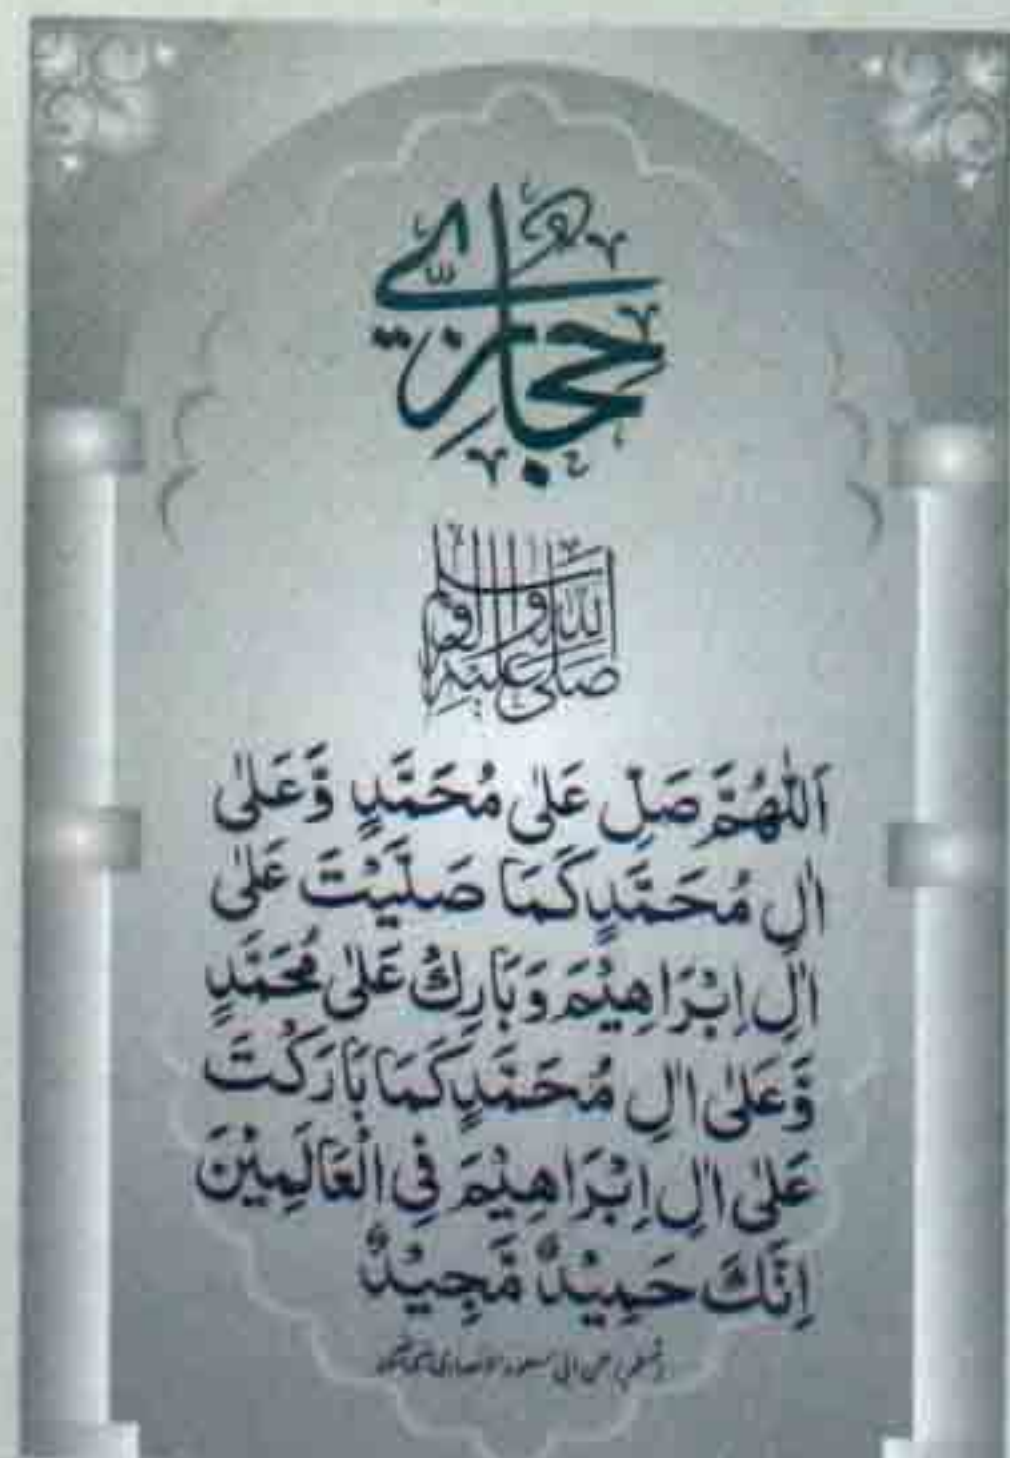 حجازي
صلى الله عليه وآله وسلم
اَللّٰهُمَّ صَلِّ عَلٰى مُحَمَّدٍ وَّعَلٰى
اٰلِ مُحَمَّدٍ كَمَا صَلَّيْتَ عَلٰى
اٰلِ اِبْرَاهِيْمَ وَبَارِكْ عَلٰى مُحَمَّدٍ
وَّعَلٰى اٰلِ مُحَمَّدٍ كَمَا بَارَكْتَ
عَلٰى اٰلِ اِبْرَاهِيْمَ فِى الْعَالَمِيْنَ
اِنَّكَ حَمِيْدٌ مَّجِيْدٌ
عن ابی مسعود الانصاری